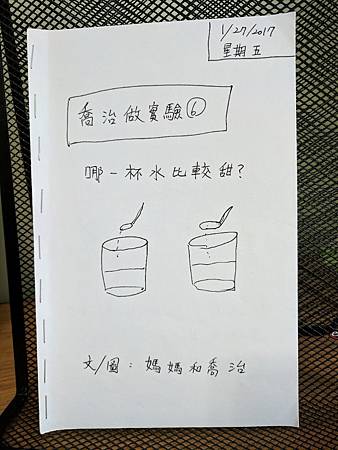 1/27/2017
星期五
喬治做實驗⑥
哪一杯水比較甜?
文/圖：媽媽和喬治